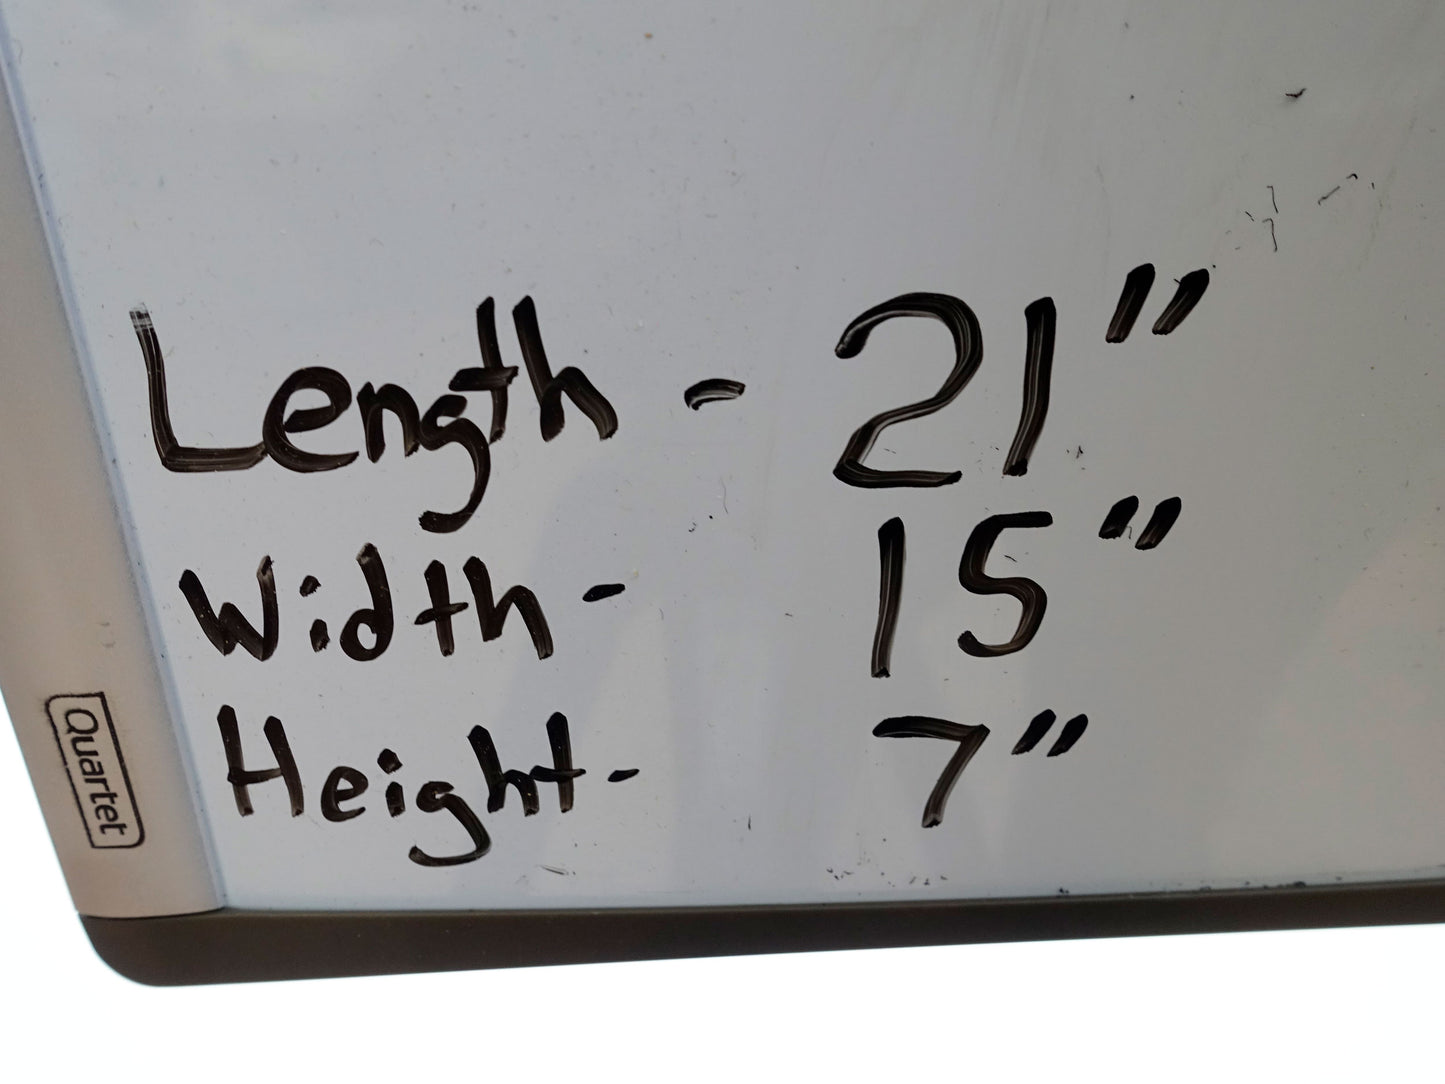 Length - 21"
Width - 15"
Height - 7"
Quartet